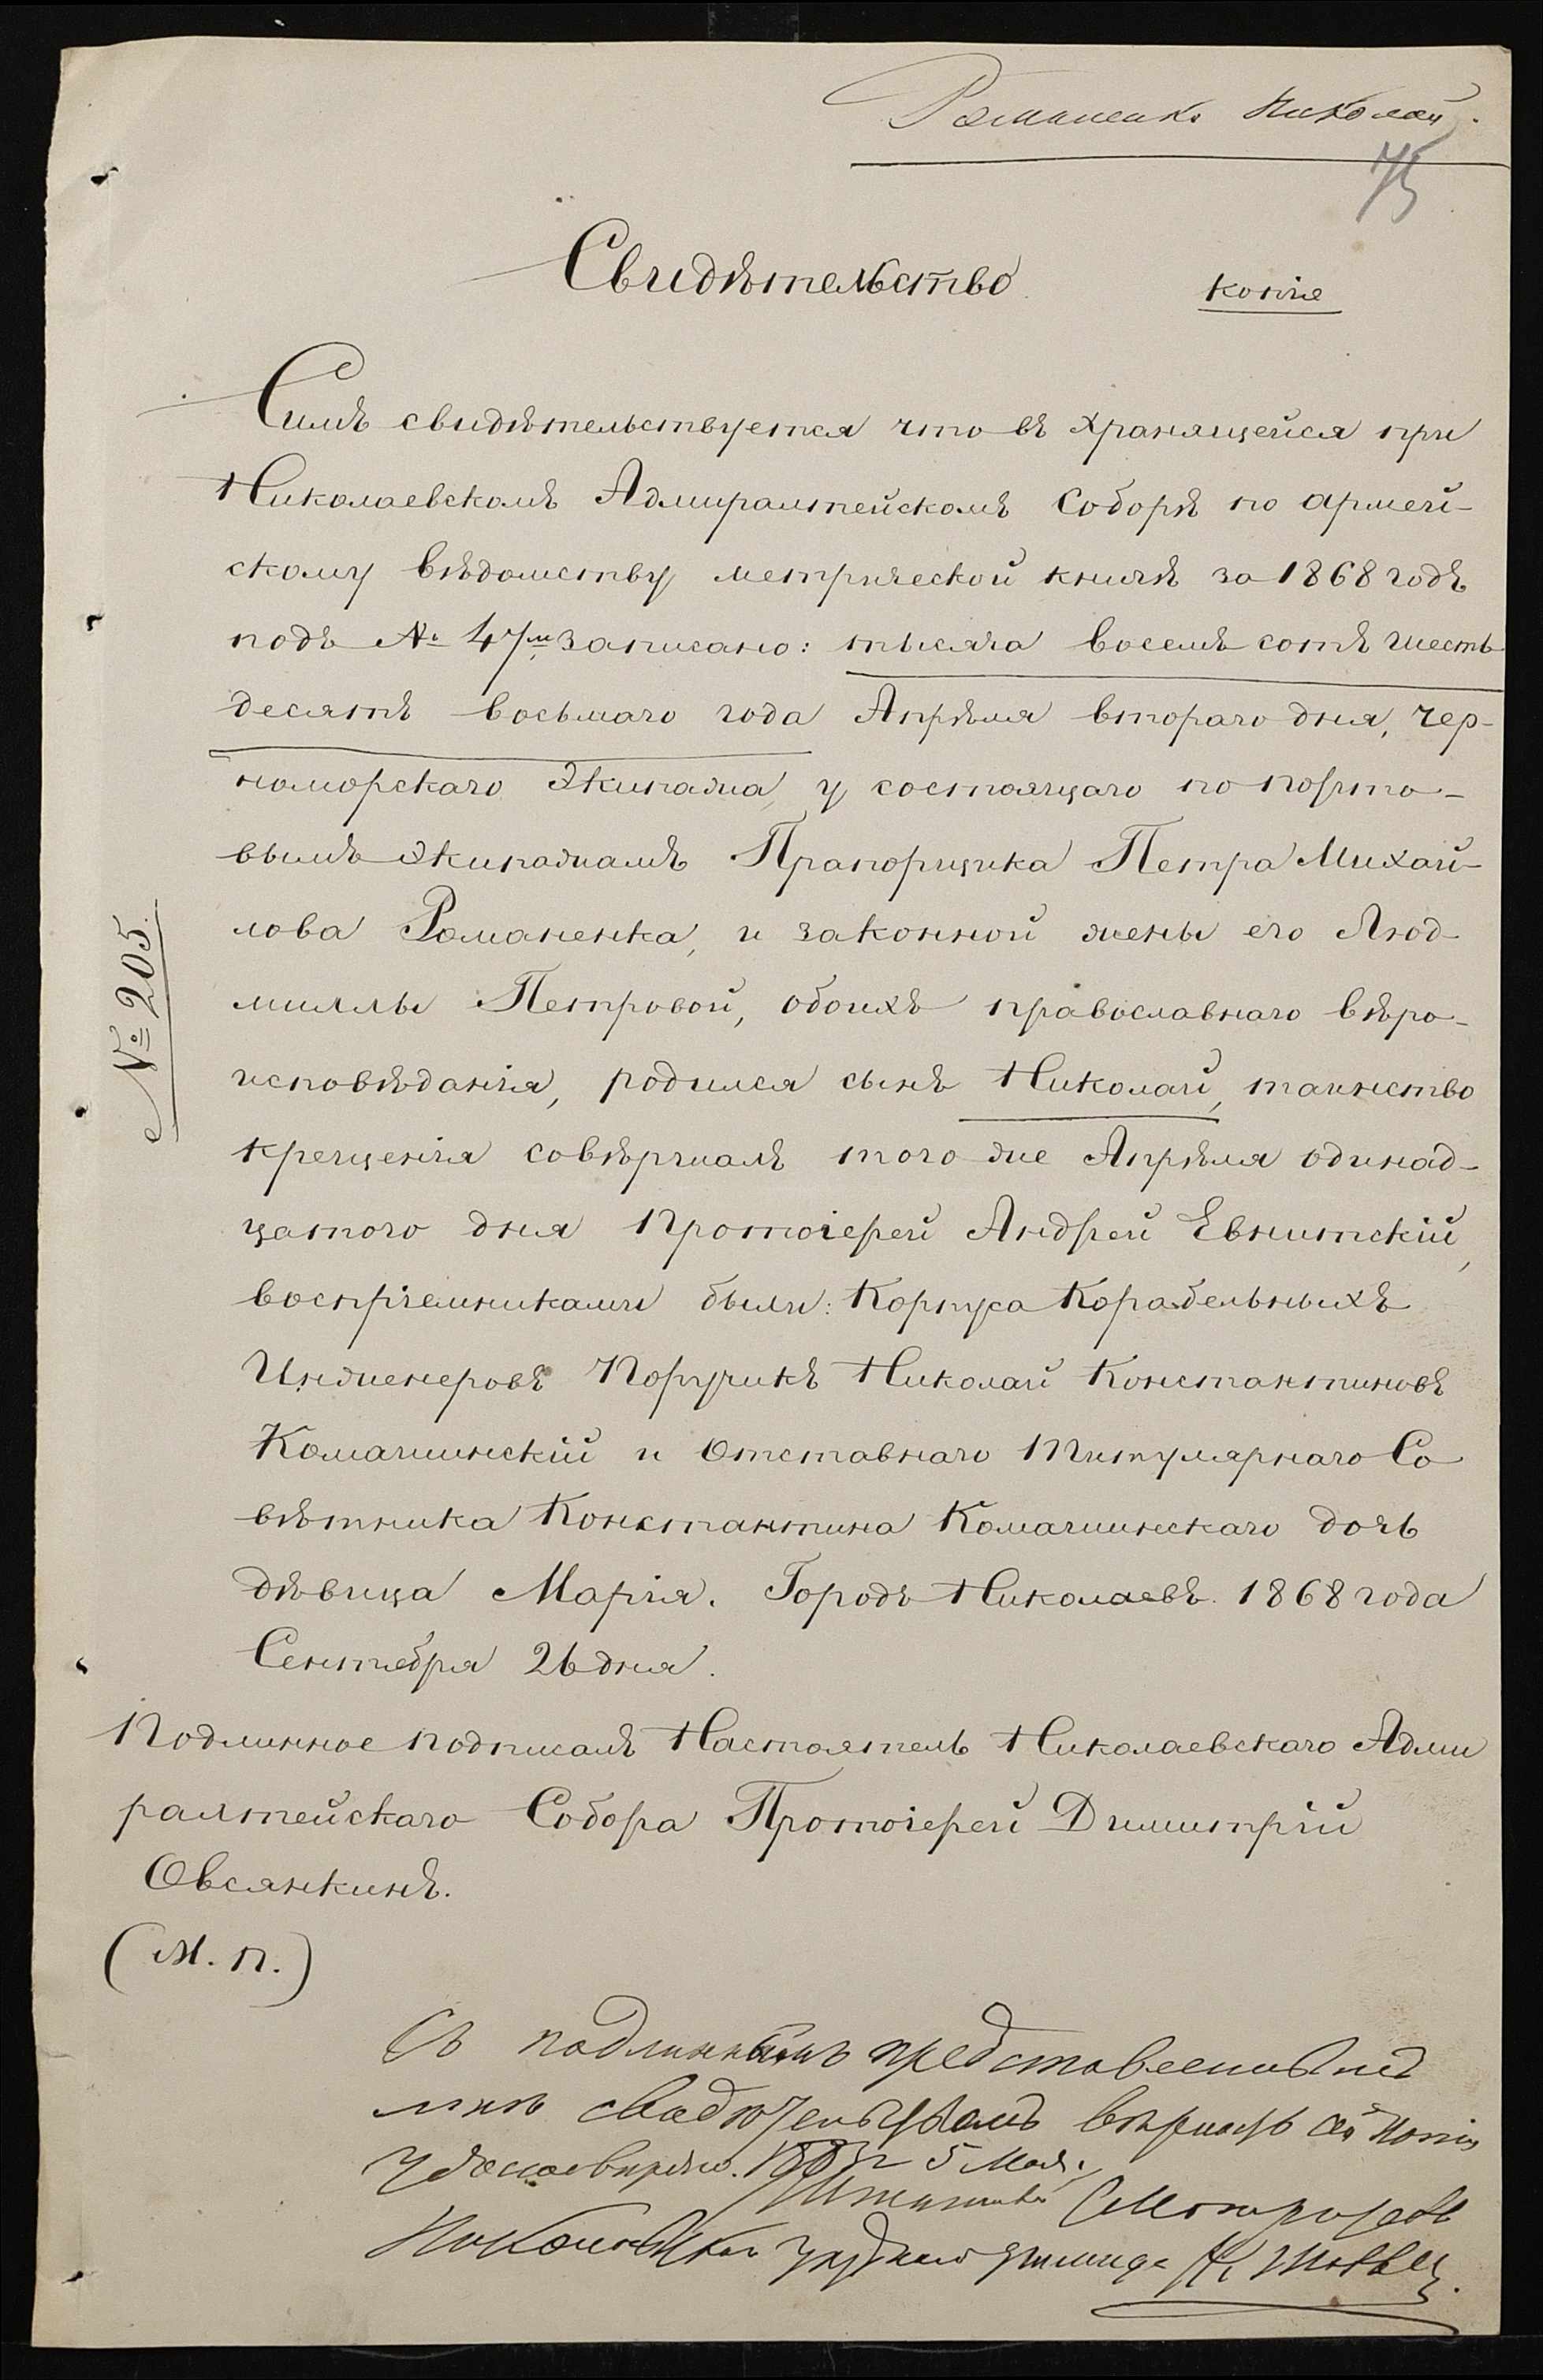 Романенко Николай.
75
Свидѣтельство
копія
Симъ свидѣтельствуется что въ хранящейся при
Николаевскомъ Адмиралтейскомъ Соборѣ по армей-
скому вѣдомству метрической книгѣ за 1868 годъ
подъ № 47м записано: тысяча восемь сотъ шесть
десятъ восьмаго года Апрѣля втораго дня, чер-
номорскаго Экипажа, у состоящаго по порто-
вымъ экипажамъ Прапорщика Петра Михай-
лова Романенка, и законной жены его Люд-
миллы Петровой, обоихъ православнаго вѣро-
исповѣданія, родился сынъ Николай, таинство
крещенія совѣршалъ того же Апрѣля одинад-
цатого дня Протоіерей Андрей Евнитскій,
воспріемниками были: Корпуса Корабельныхъ
Инженеровъ Поручикъ Николай Константиновъ
Комаринскій и Отставнаго Титулярнаго Со
вѣтника Константина Комаринскаго дочь
дѣвица Марія. Городъ Николаевъ. 1868 года
Сентября 26 дня.
Подлинное подписалъ Настоятель Николаевскаго Адми
ралтейскаго Собора Протоіерей Димитрій
Овсянкинъ.
(М. П.)
№ 205.
Съ подлиннымъ представленнымъ
мнѣ свидѣтельствомъ вѣрность сей копіи
удостовѣряю. 1883 г 5 Мая.
Николаевскаго